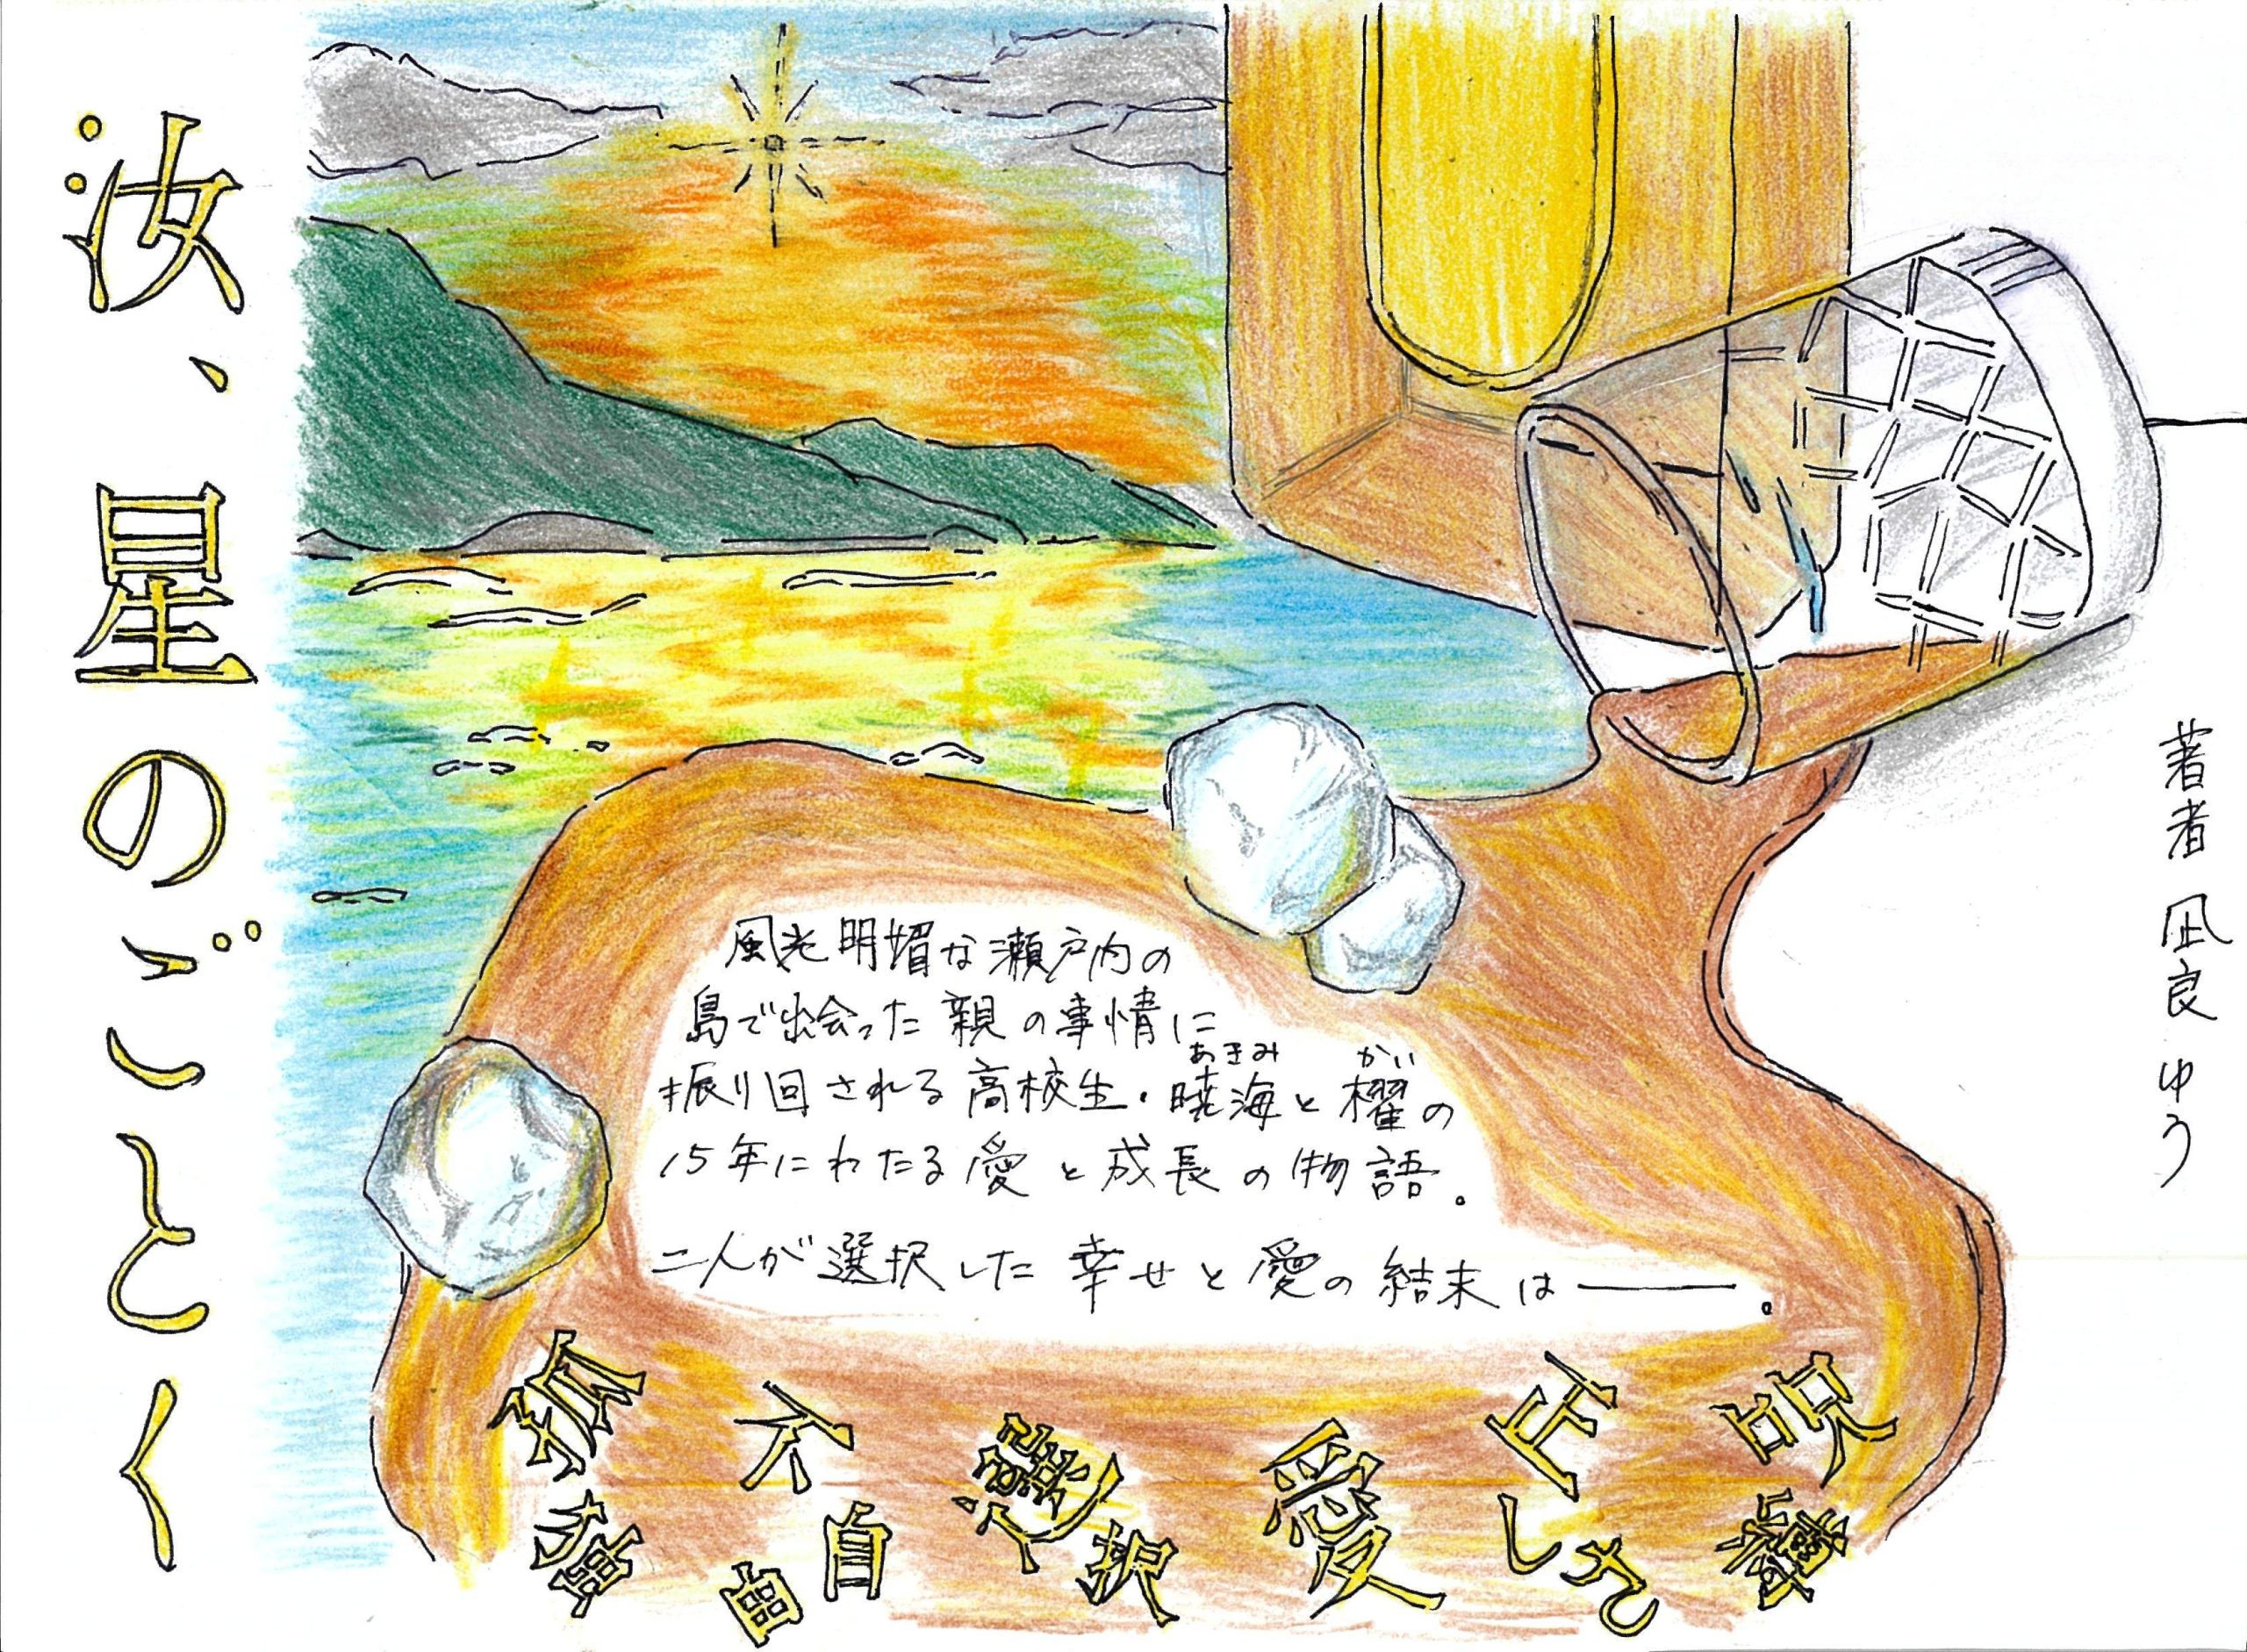 汝、星のごとく
著者 凪良 ゆう
風光明媚な瀬戸内の
島で出会った親の事情に
振り回される高校生・暁海と櫂の
あきみ かい
15年にわたる愛と成長の物語。
二人が選択した幸せと愛の結末は――。
孤独
不自由
選択
愛
正しさ
呪縛